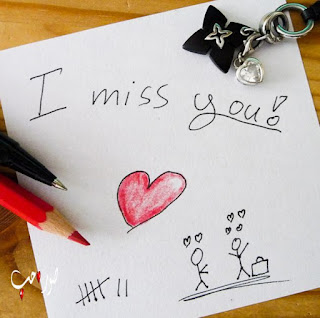 I miss you!